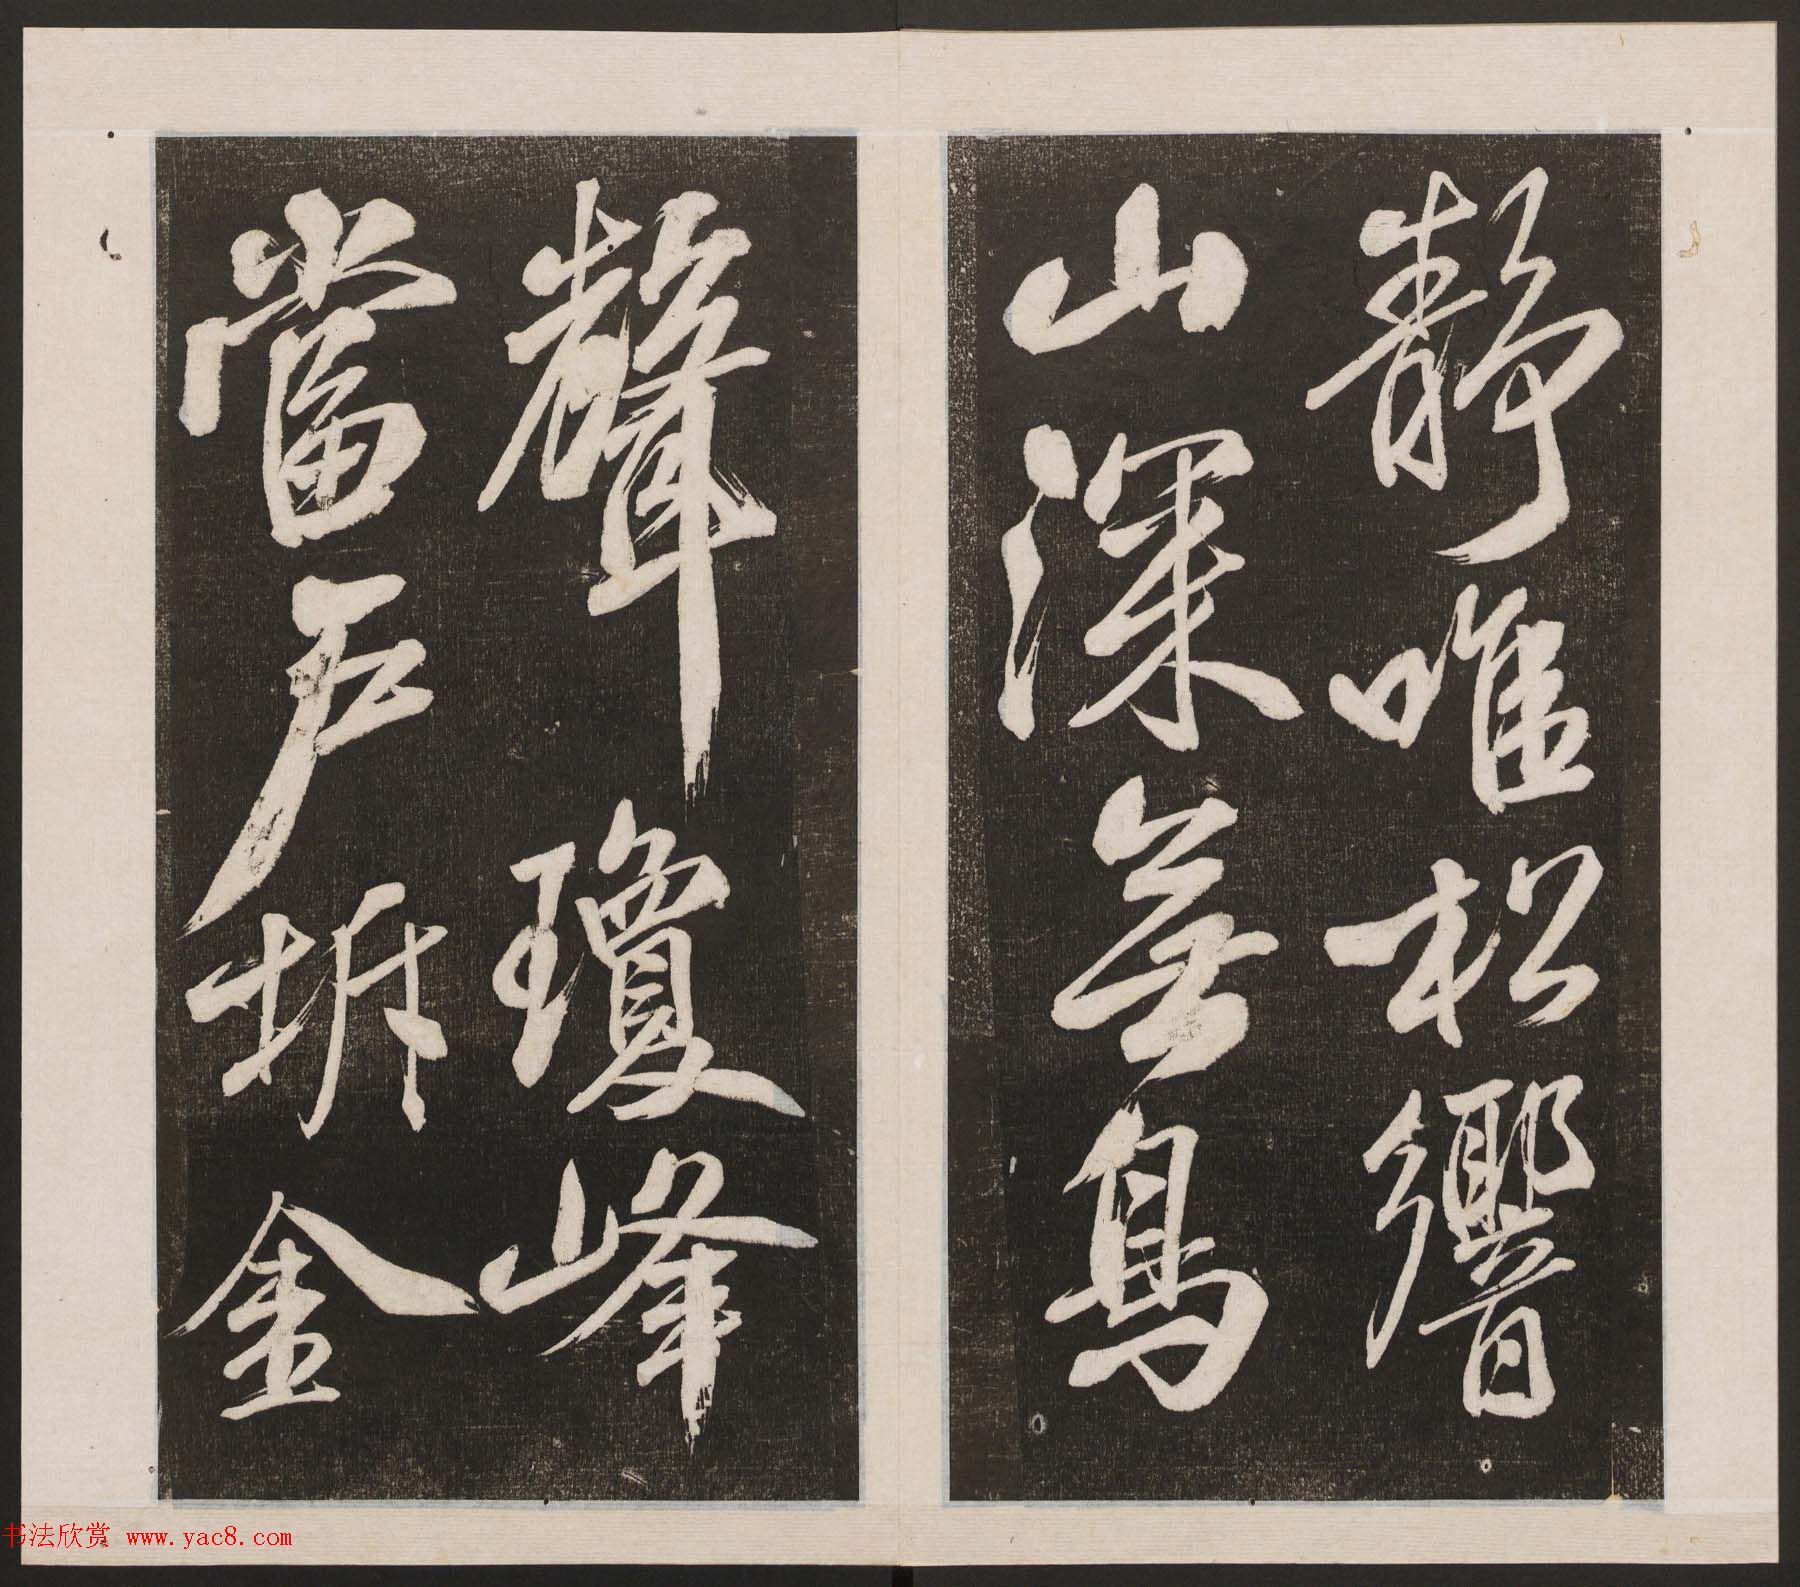 靜唯松響
山深無鳥
聲瓊峰
當戶坼金
书法欣赏 www.yac8.com